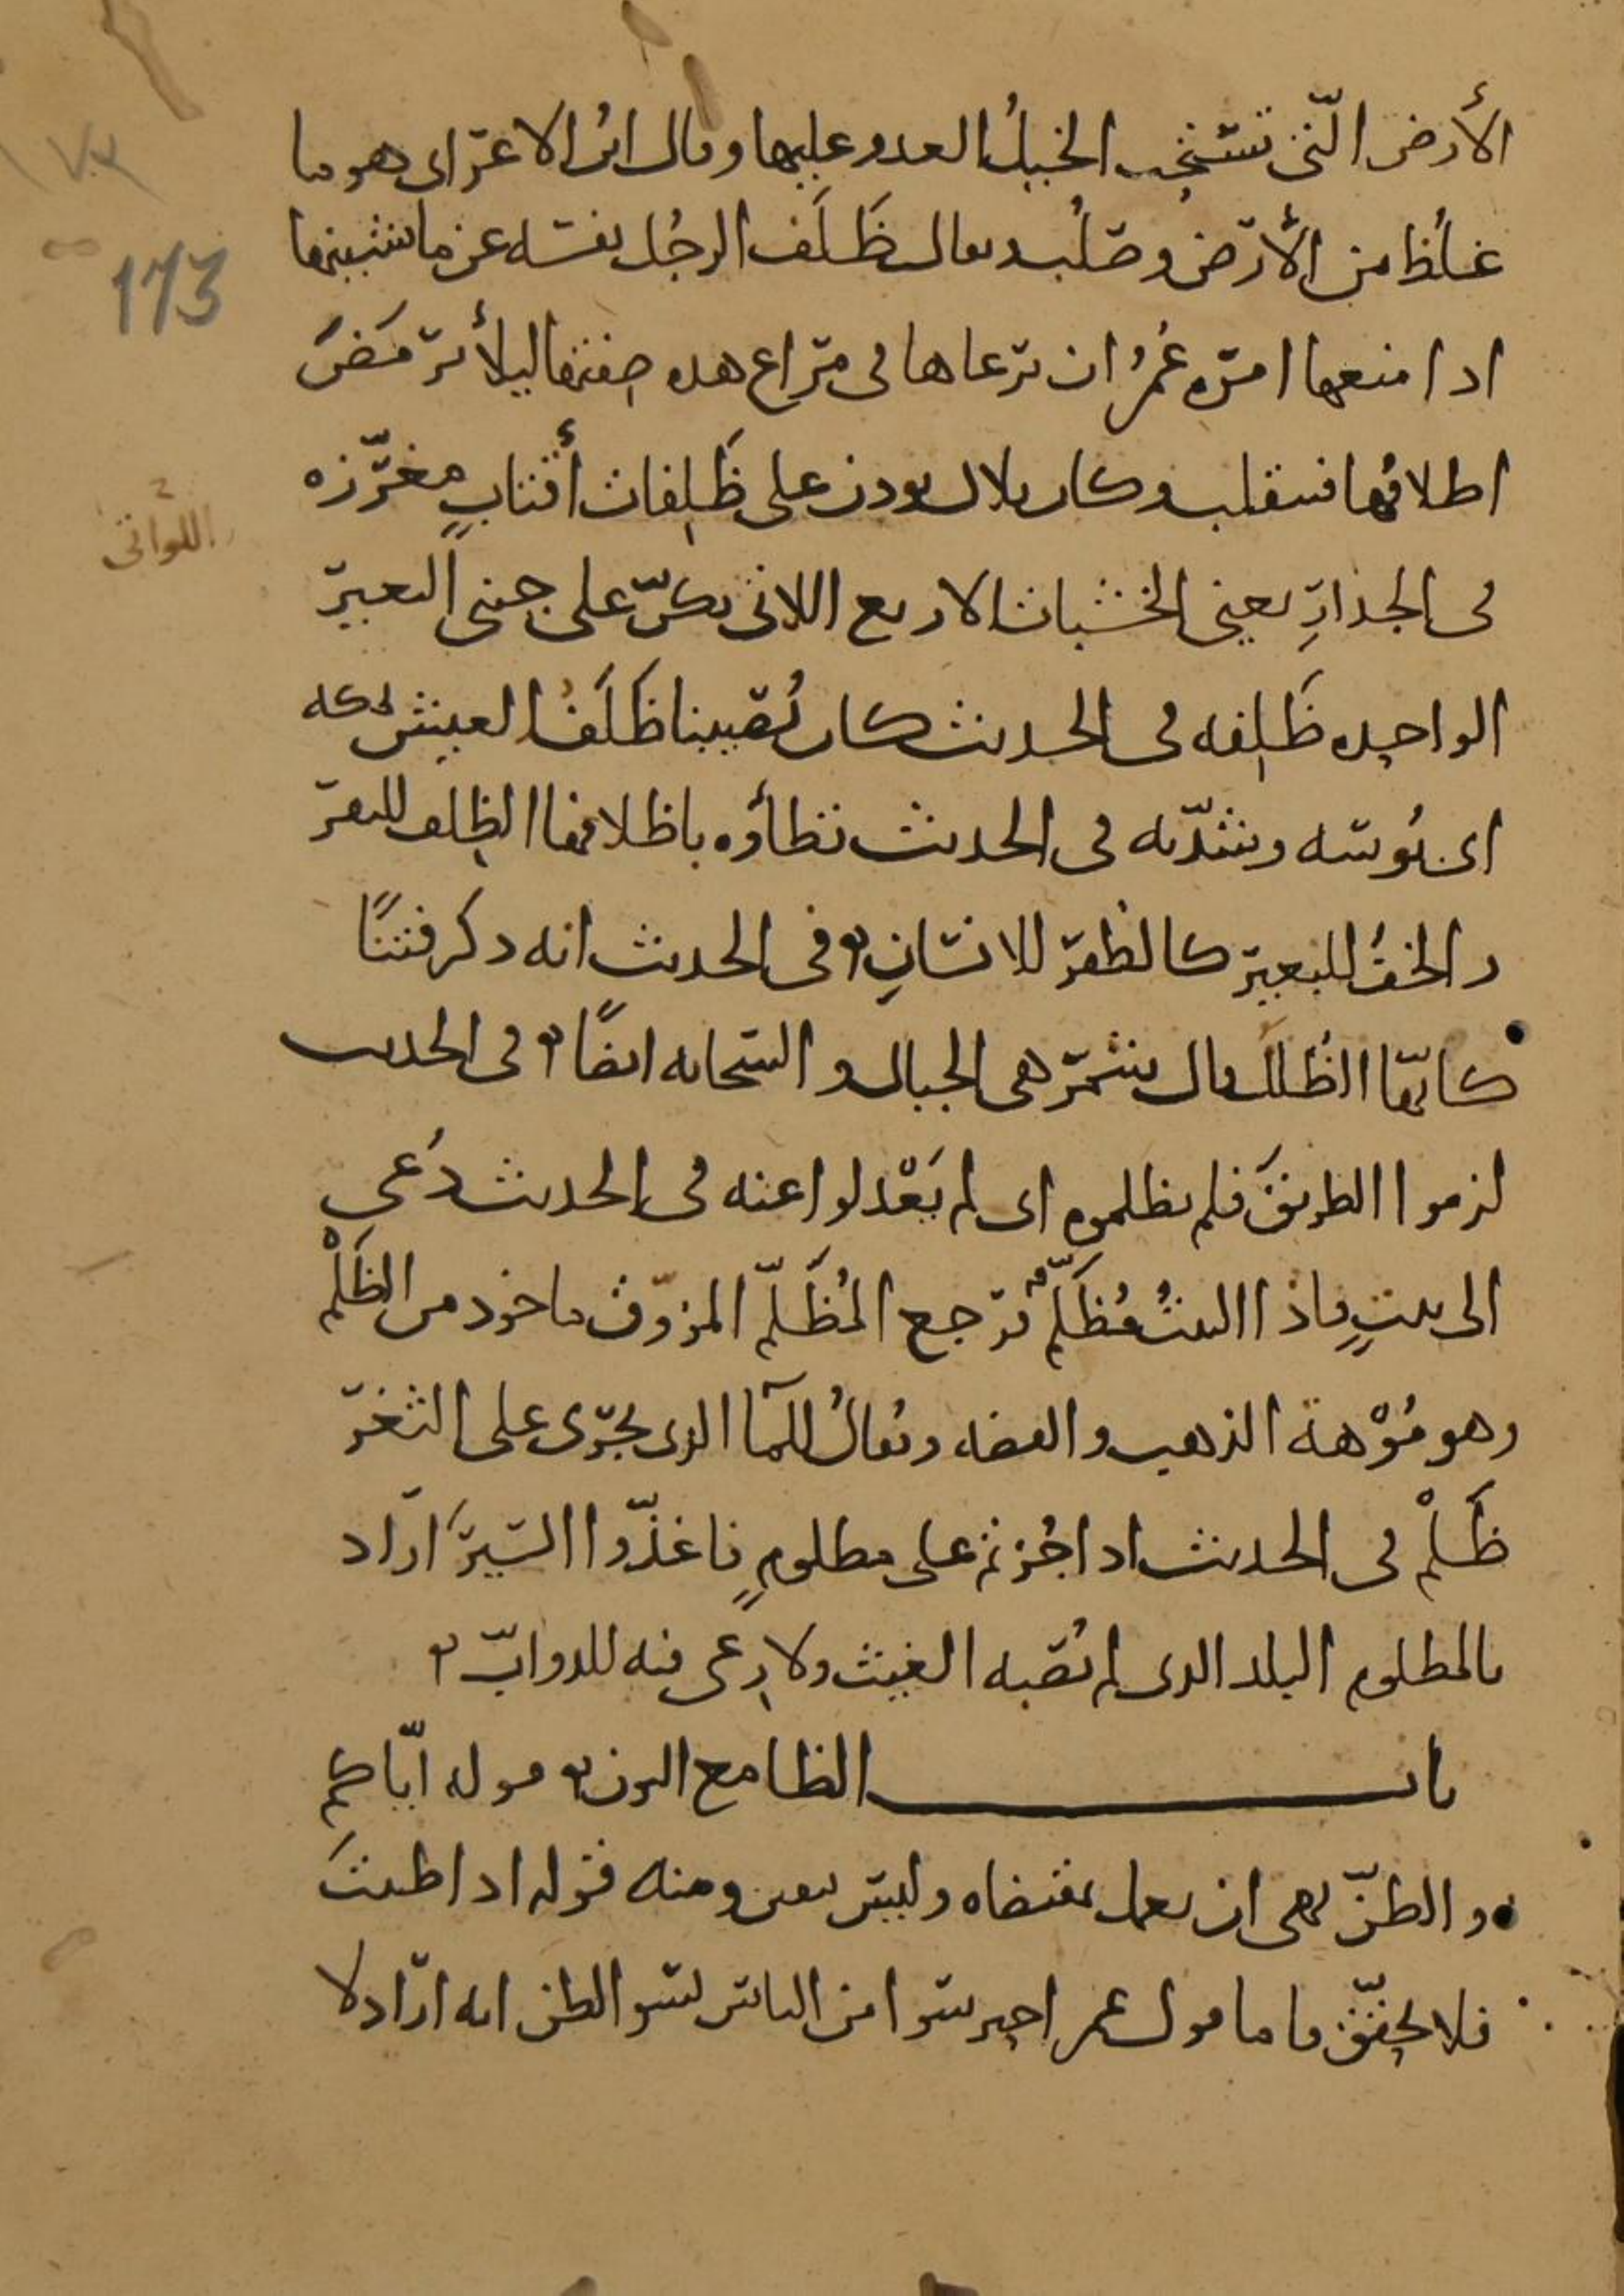 الأرض التي تستحب الخيل العدو عليها وقال ابن الاعرابى هو ما
غلظ من الأرض وصلب ويقال ظَلَف الرجُل نفسه عن ما يشينها
اذا منعها امره عُمَرُ ان يرعاها فى مراع هذه صفتها ليلا ترمَضَ
اظلافُها فتتلف وكان بلال يوذن على ظَلِفات أقتابٍ مغرّزه
فى الجدارِ يعنى الخشبات الاربع اللاتى يكنّ على جنبى البعير
اللواتى
الواحده ظَلِفه فى الحديث كان يُصيبنا ظَلَفُ العيش بمكه
اى بُوسه وشدّته فى الحديث تطأوه باظلافها الظلف للبقر
والخفُّ للبعير كالظفر للانسانِ وفى الحديث انه ذكر فتنًا
كانّها الظُلَل قال شمر هى الجبال والسحابه ايضًا فى الحديث
لزموا الطريقَ فلم يظلموه اى لم يَعْدلوا عنه فى الحديث دُعى
الى بيتٍ فاذا البيتُ مُظَلّم فرجع المُظَلّم المزوّق ماخوذ من الظَلْم
وهو مُوْهة الذهب والفضه ويُقالُ للمآ الذى يجرى على الثغر
ظَلْم فى الحديث اذا اجُزتم على مظلومٍ فاغذّوا السيرَ اراد
بالمظلوم البلد الذى لم يُصبه الغيث ولا رِعى فيه للدوابّ
باب الظا مع النون قوله ايّاكم
والظنّ نهى ان يعمل بمقتضاه وليس بيقين ومنه قوله اذا ظننتَ
فلا تحقّق فاما قول عمر احتجزوا من الناس بسو الظن انه اراد لا
173
١٧٣